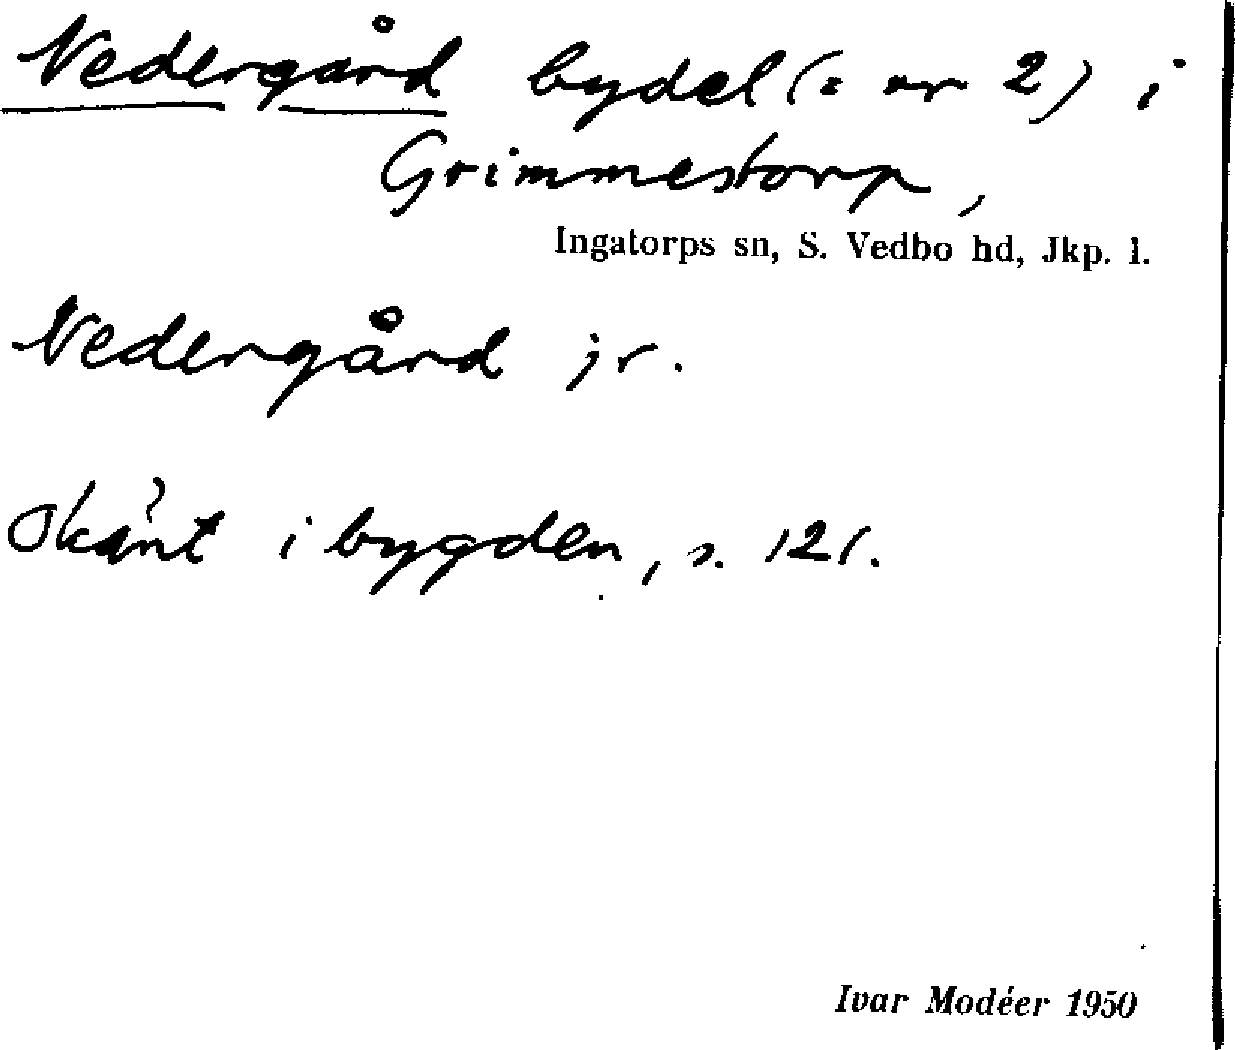 Nedergård bydel (= nr 2) i
Grimmestorp,
Ingatorps sn, S. Vedbo hd, Jkp. l.
Nedergård jr.
Okänt i bygden, s. 121.
Ivar Modéer 1950